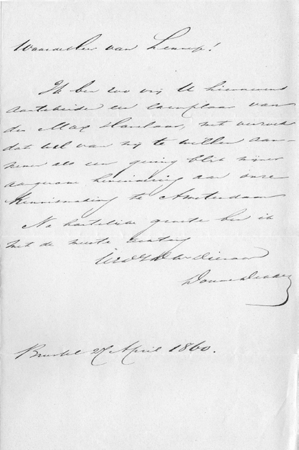 Waarde Heer van Lennep!
Ik ben zoo vrij U hiernevens
aantebieden een exemplaar van
den Max Havelaar, met verzoek
dat wel van mij te willen aan-
nemen als een gering blijk mijner
aangename herinnering aan onze
kennismaking te Amsterdam
Na hartelijke groete ben ik
met de meeste achting
UEd Dw Dienaar
Douwes Dekker
Brussel 27 April 1860.